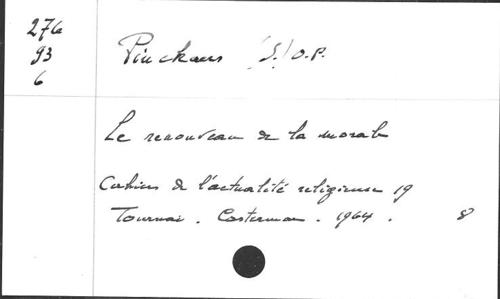 276
93
6
Pinckaers (S.) O.P.
Le renouveau de la morale
Cahiers de l'actualité religieuse 19
Tournai. Casterman. 1964. 8